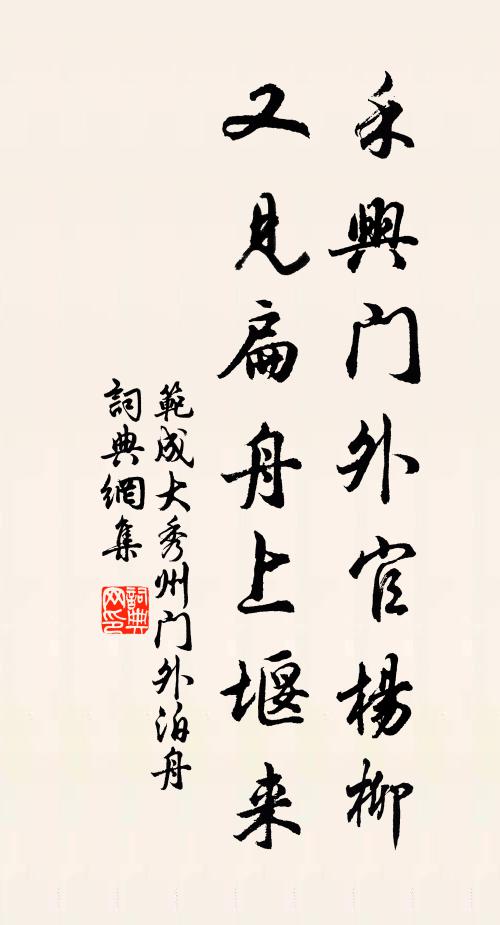 禾興門外官楊柳
又見扁舟上堰来
範成大秀州門外泊舟
詞典網集
詞典網印